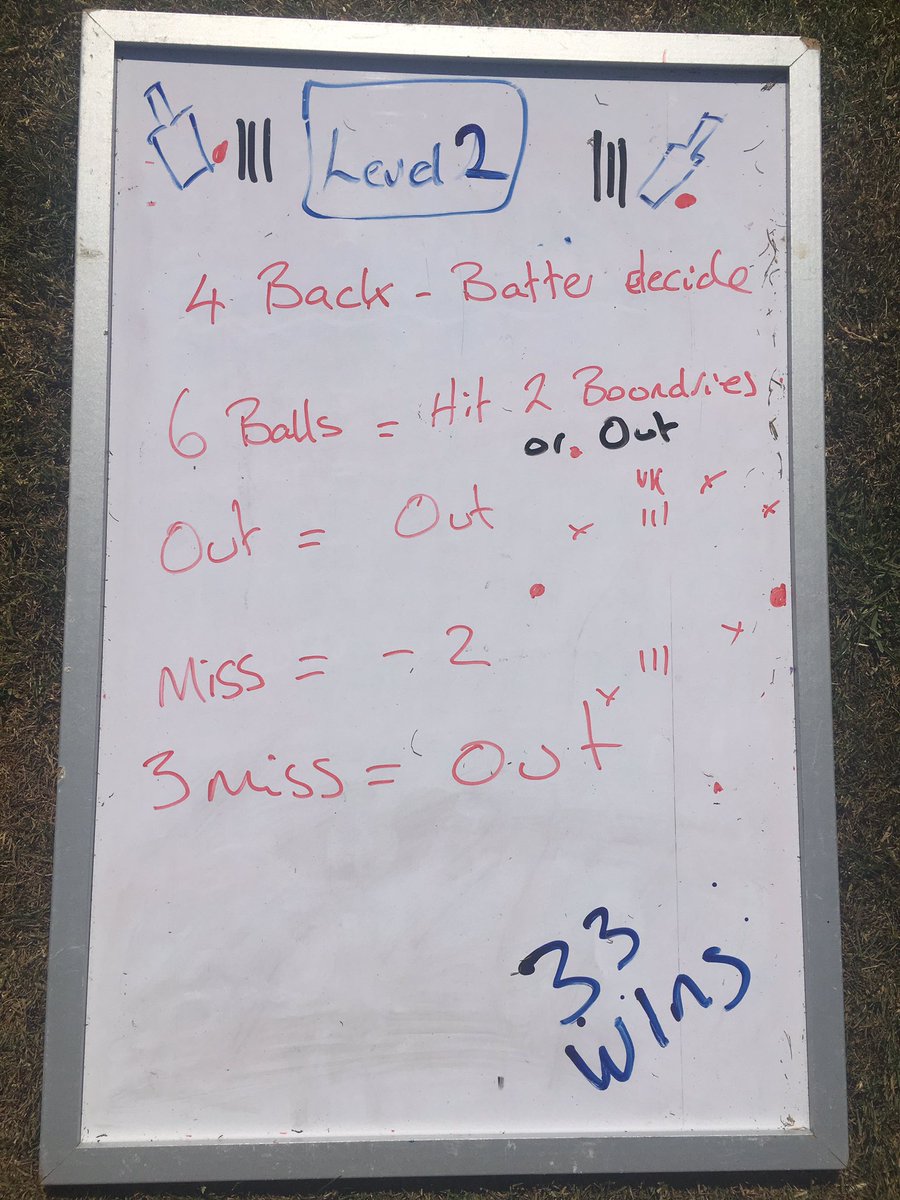 Level 2
4 Back - Batter decide
6 Balls = Hit 2 Boondries
or Out
Out = Out
WK
Miss = - 2
3 Miss = Out
33
Wins